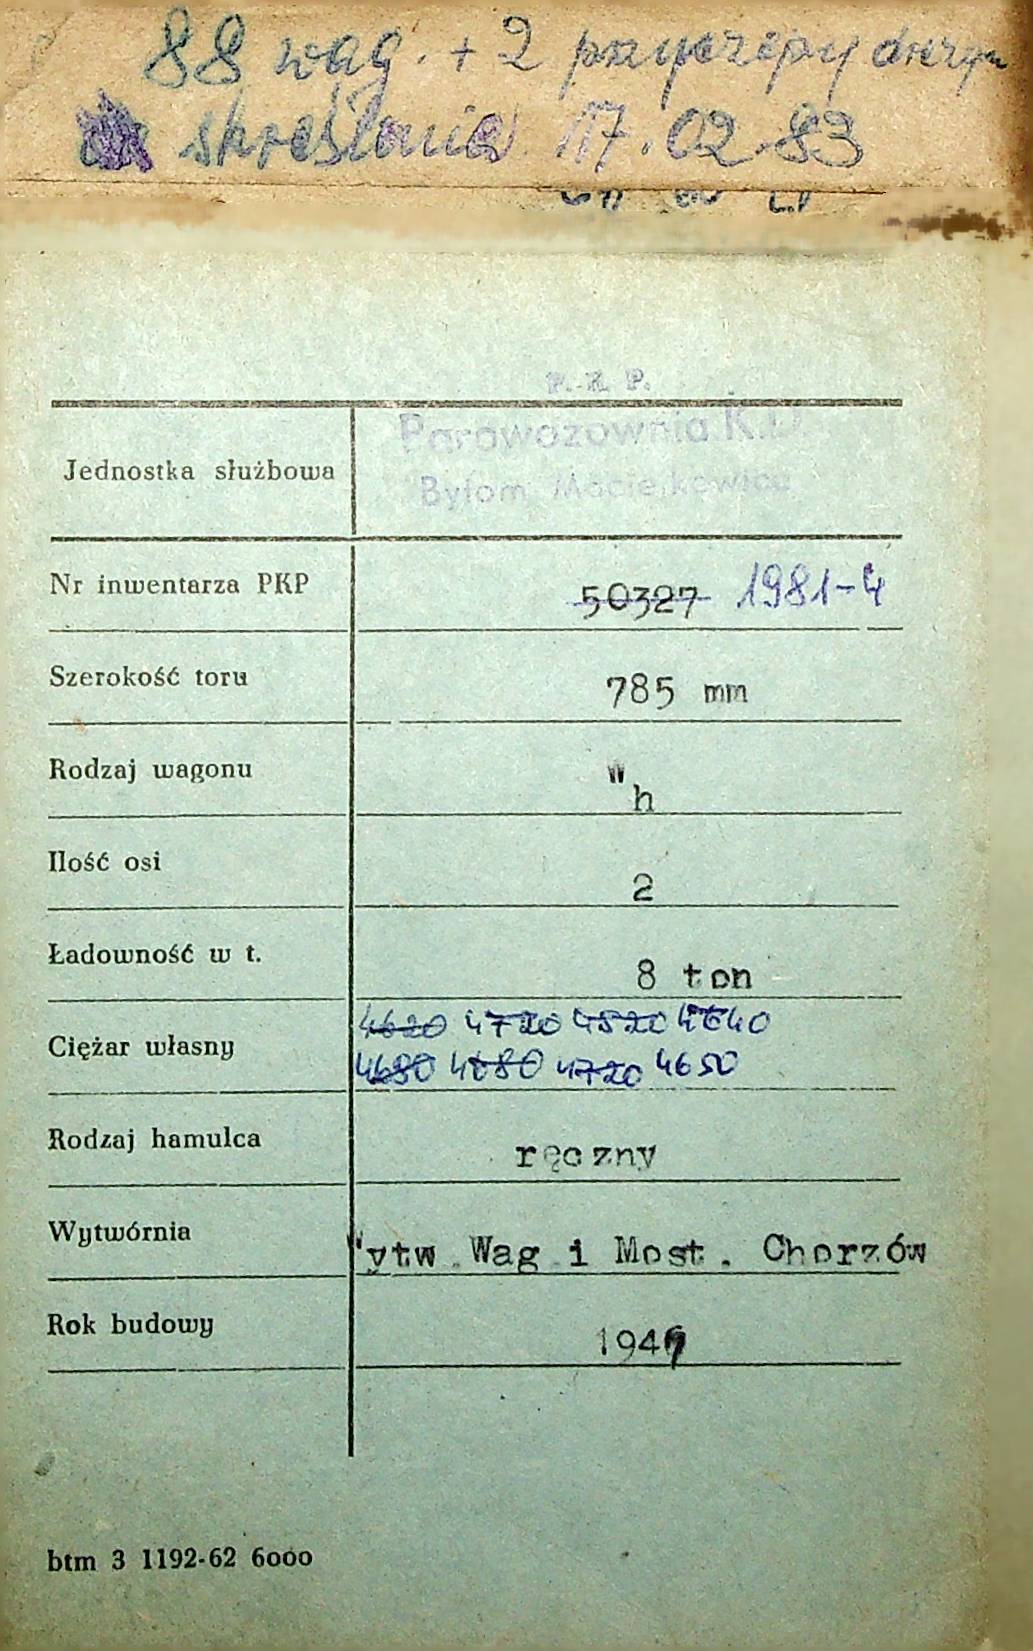 88 wag. + 2 przyczepy drezyn
skreślania 17.02.83
P.K.P.
Parowozownia K.D.
Jednostka służbowa
Bytom Maciejkowice
Nr inwentarza PKP 50327 1981-4
Szerokość toru 785 mm
Rodzaj wagonu Wh
Ilość osi 2
Ładowność w t. 8 ton
4620 4720 4520 4640
Ciężar własny
4680 4680 4720 4650
Rodzaj hamulca ręczny
Wytwórnia Wytw. Wag i Most. Chorzów
Rok budowy
btm 3 1192-62 6000